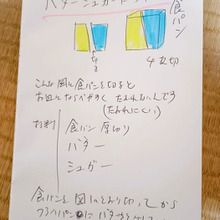 バターシュガートースト
食パン
4等切
こんな図に食パンを切ると
お皿にならべやすく たおれないんです
(たおれにくい)
材料
食パン 厚切り
バター
シュガー
食パンを 図1のとおり切ってから
フライパンに バターを